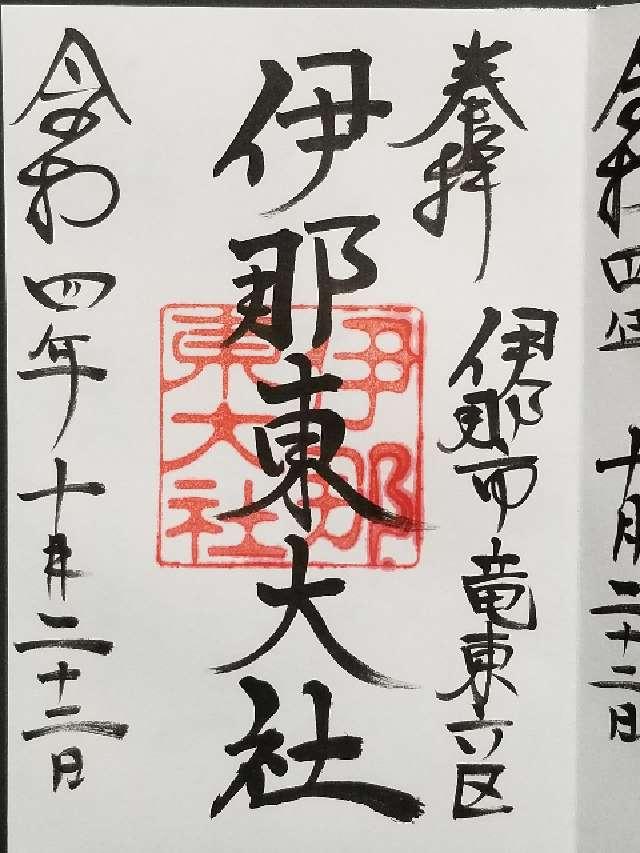 令和四年十月二十二日
奉拝
伊那市竜東六区
伊那東大社
伊那
東大社
令和四年十月二十二日